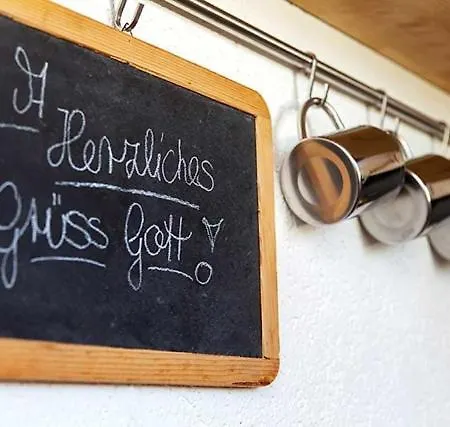 A Herzliches
Grüss Gott!